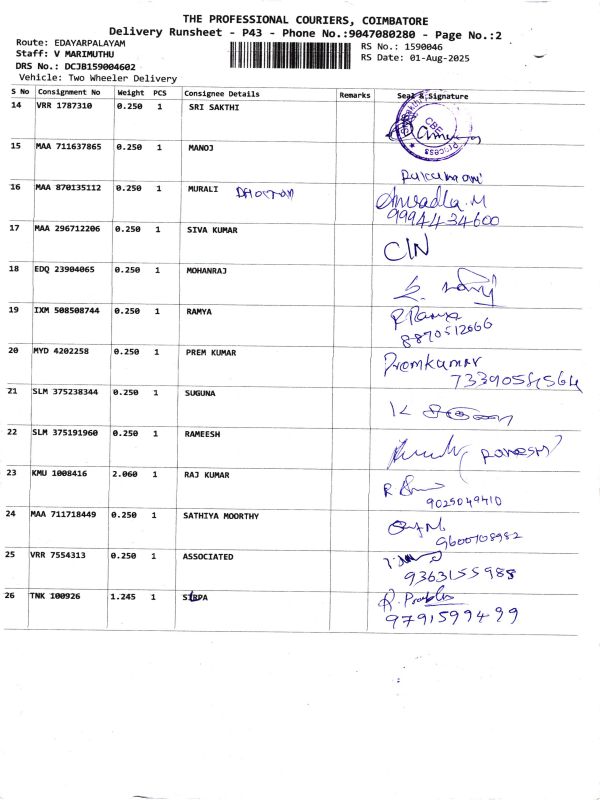 THE PROFESSIONAL COURIERS, COIMBATORE
Delivery Runsheet - P43 - Phone No.:9047080280 - Page No.:2
Route: EDAYARPALAYAM
Staff: V MARIMUTHU
DRS No.: DCJB159004602
Vehicle: Two Wheeler Delivery
RS No.: 1590046
RS Date: 01-Aug-2025
S No Consignment No Weight PCS Consignee Details Remarks Seal & Signature
14 VRR 1787310 0.250 1 SRI SAKTHI
CBE
Process
15 MAA 711637865 0.250 1 MANOJ
16 MAA 870135112 0.250 1 MURALI
Anuradha.M
9994434600
17 MAA 296712206 0.250 1 SIVA KUMAR
18 EDQ 23904065 0.250 1 MOHANRAJ
19 IXM 508508744 0.250 1 RAMYA R Ramya
8870512666
20 MYD 4202258 0.250 1 PREM KUMAR Premkumar
21 SLM 375238344 0.250 1 SUGUNA
22 SLM 375191960 0.250 1 RAMEESH
23 KMU 1008416 2.060 1 RAJ KUMAR
9025049410
24 MAA 711718449 0.250 1 SATHIYA MOORTHY
9600708982
25 VRR 7554313 0.250 1 ASSOCIATED
9363155988
26 TNK 100926 1.245 1
9791599499